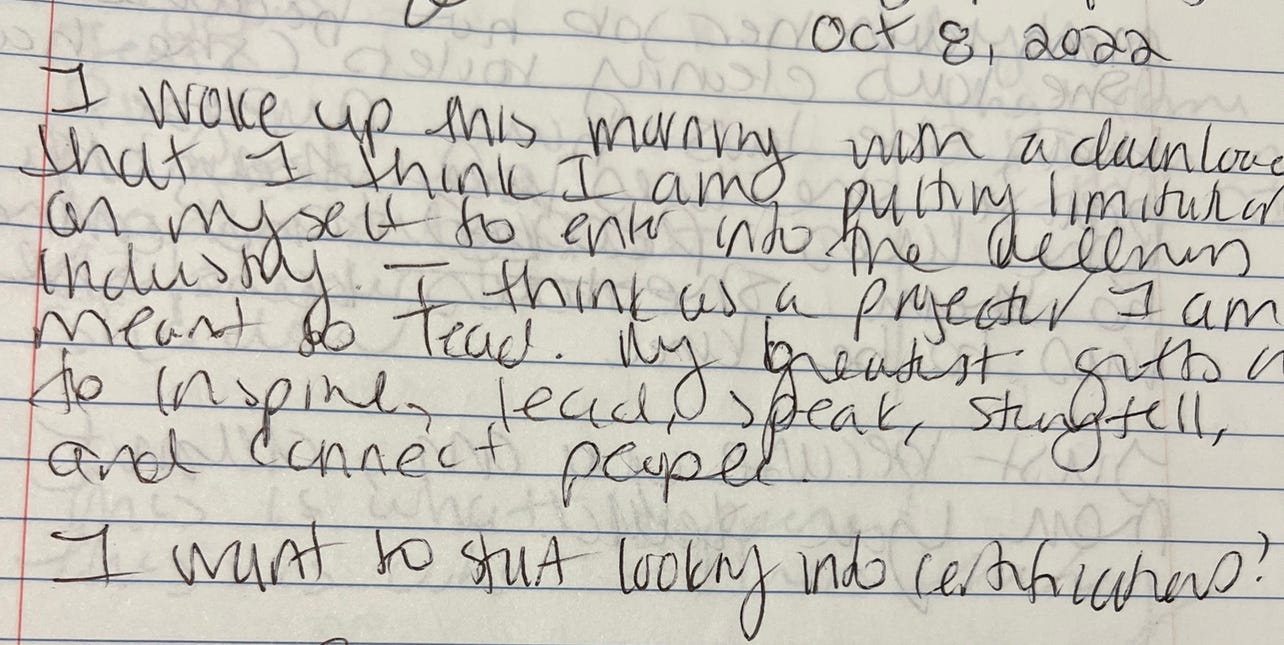 Oct 8, 2022
I woke up this morning with a download
that I think I am putting limitation
on myself to enter into the
industry. I think as a projector I am
meant to lead. My greatest gifts
to inspire, lead, speak, storytell,
and connect people.
I want to start looking into certifications?